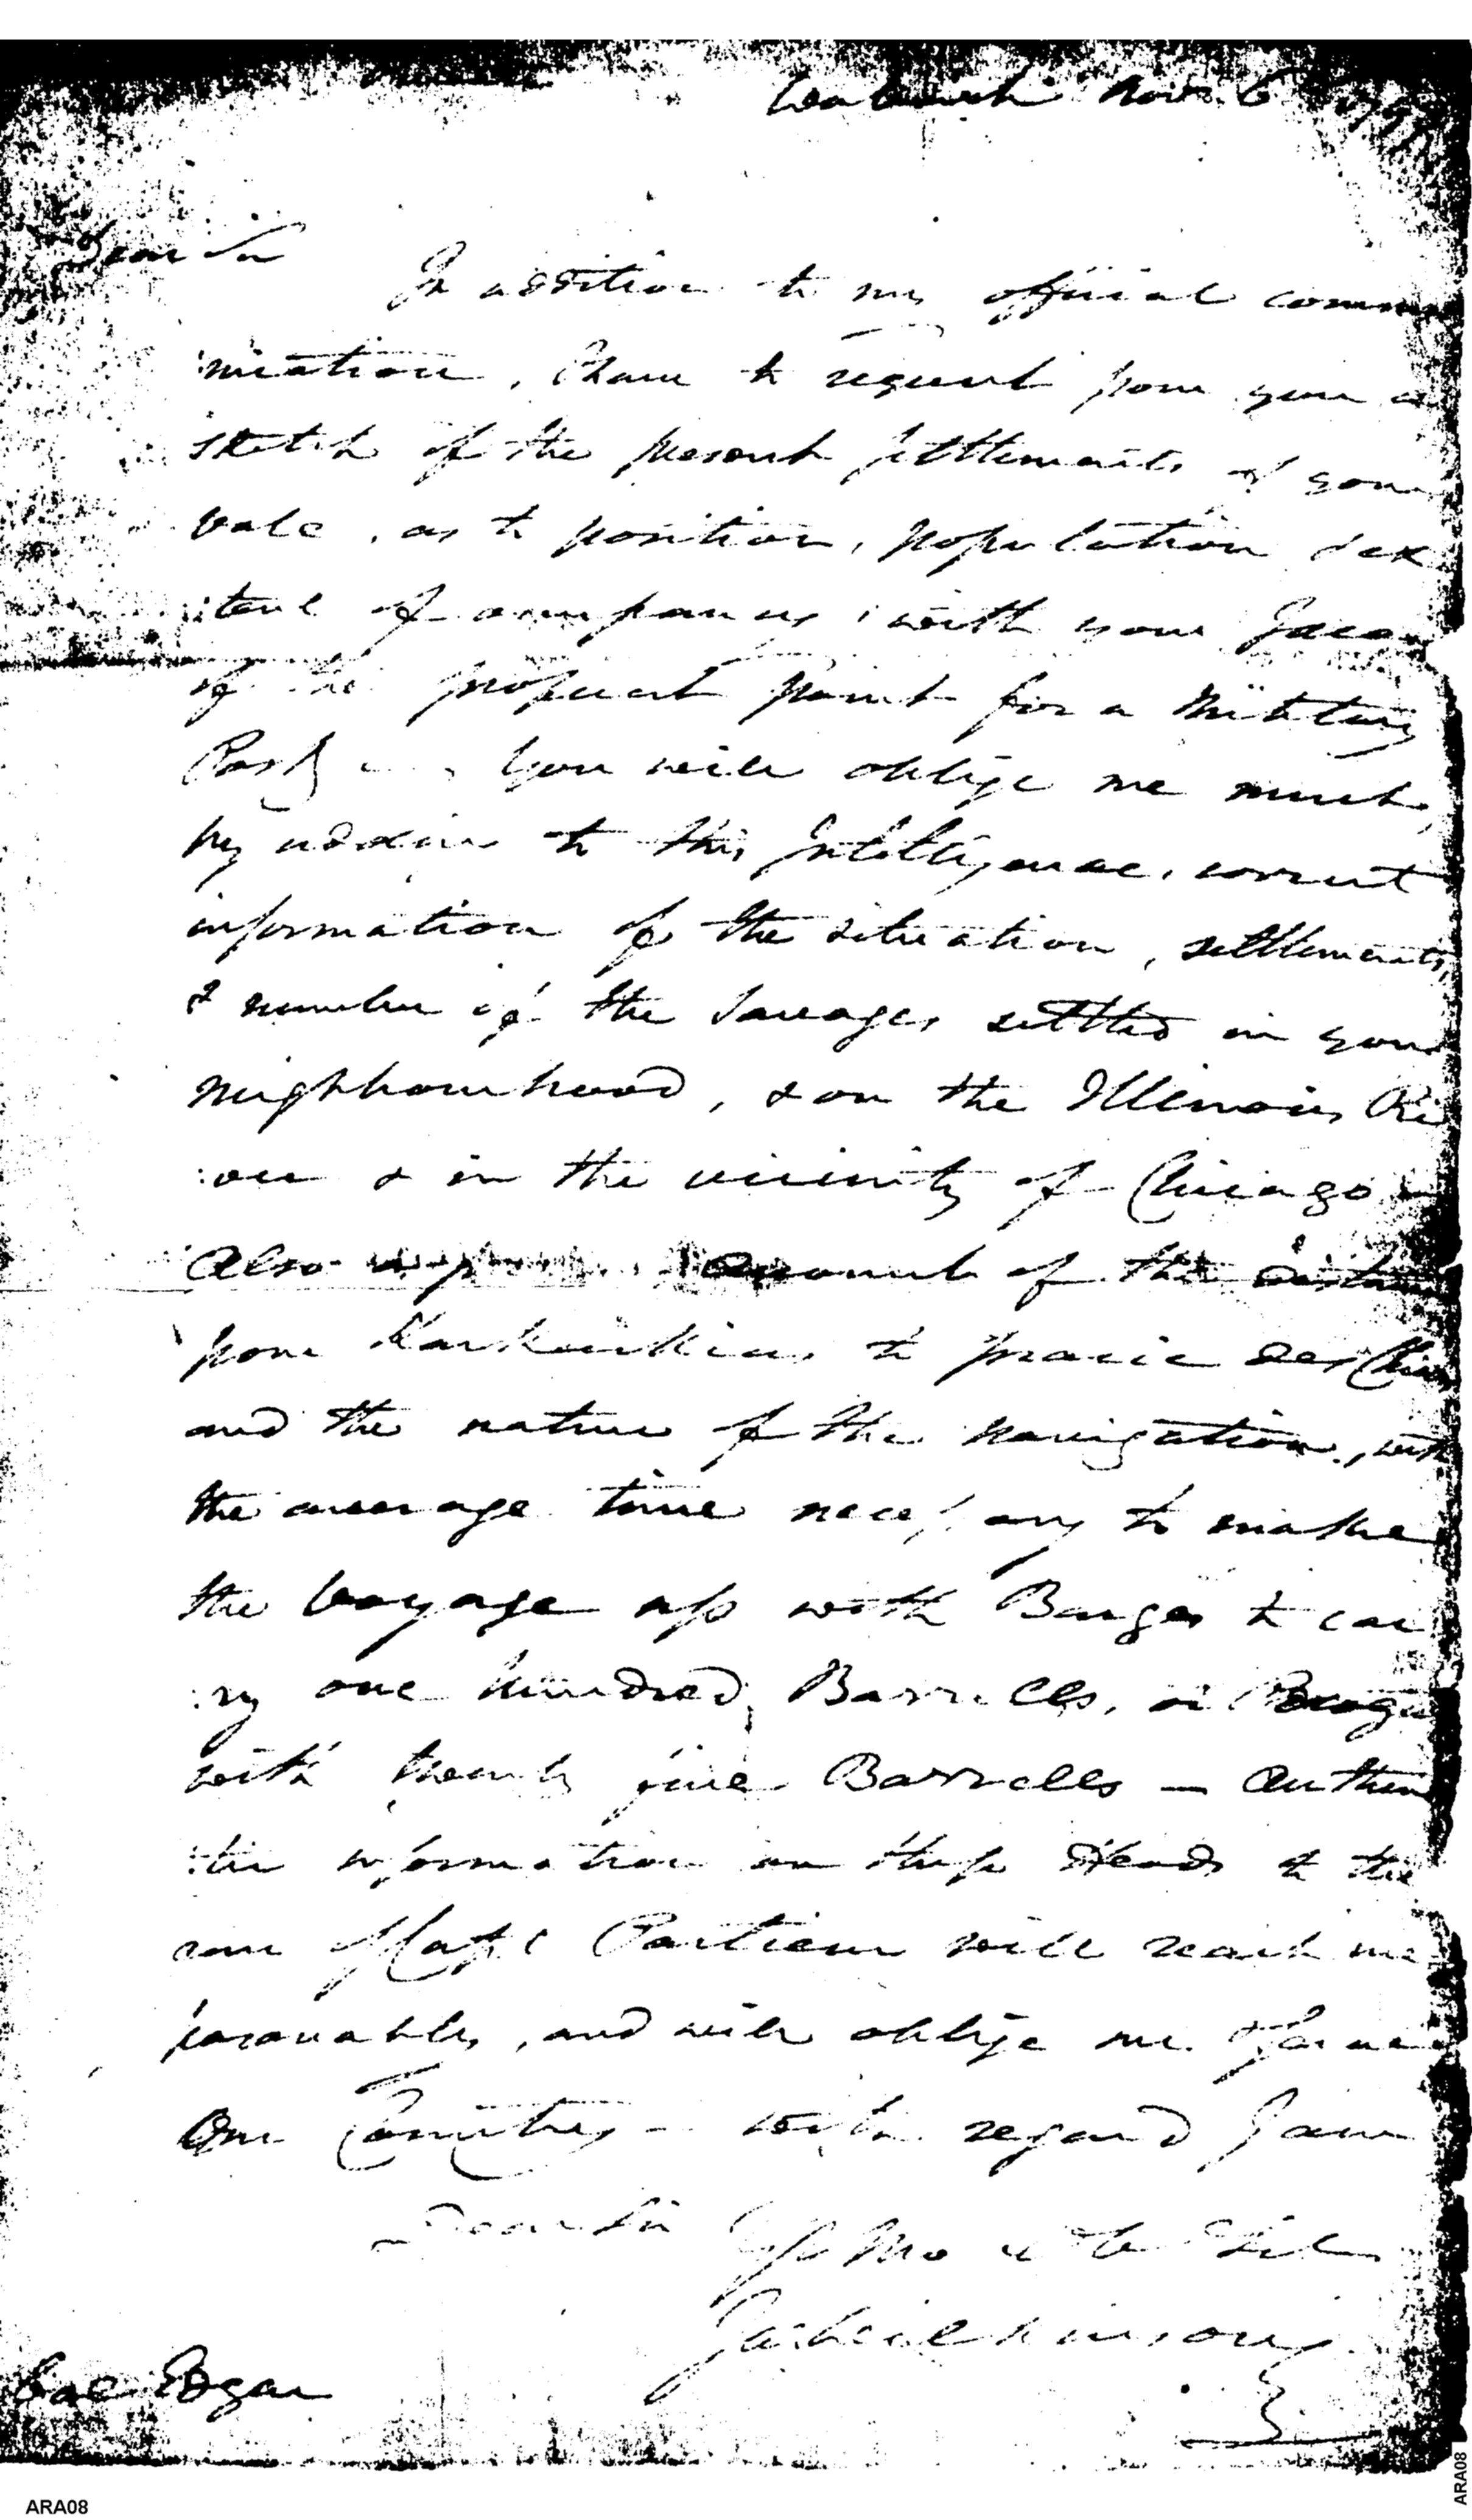 Nov. 6 179
Dear Sir
In addition to my official commu
:nication, I have to request from you a
sketch of the present settlements of your
vale, as to position, population & ex
:tent of occupancy, with your Ideas
of the properest point for a Military
Post — You will oblige me much,
by adding to this Intelligence, correct
information of the situation, settlements,
& number of the Savages settled in your
neighbourhood, & on the Illinois Ri
:ver & in the vicinity of Chicago —
Also account of the distance
from Kaskaskias, to prairie des Chien
and the nature of the navigation, with
the average time necessary to make
the voyage up with Barges to car
:ry one hundred Barrells, or Perogu
with twenty five Barrells — Authen
:tic information on these Heads to the
care of Capt Pasteur will reach me
seasonably, and will oblige me & serve
Our Country — with regard I am
Dear Sir
Ja Wilkinson
Edgar
ARA08
ARA08